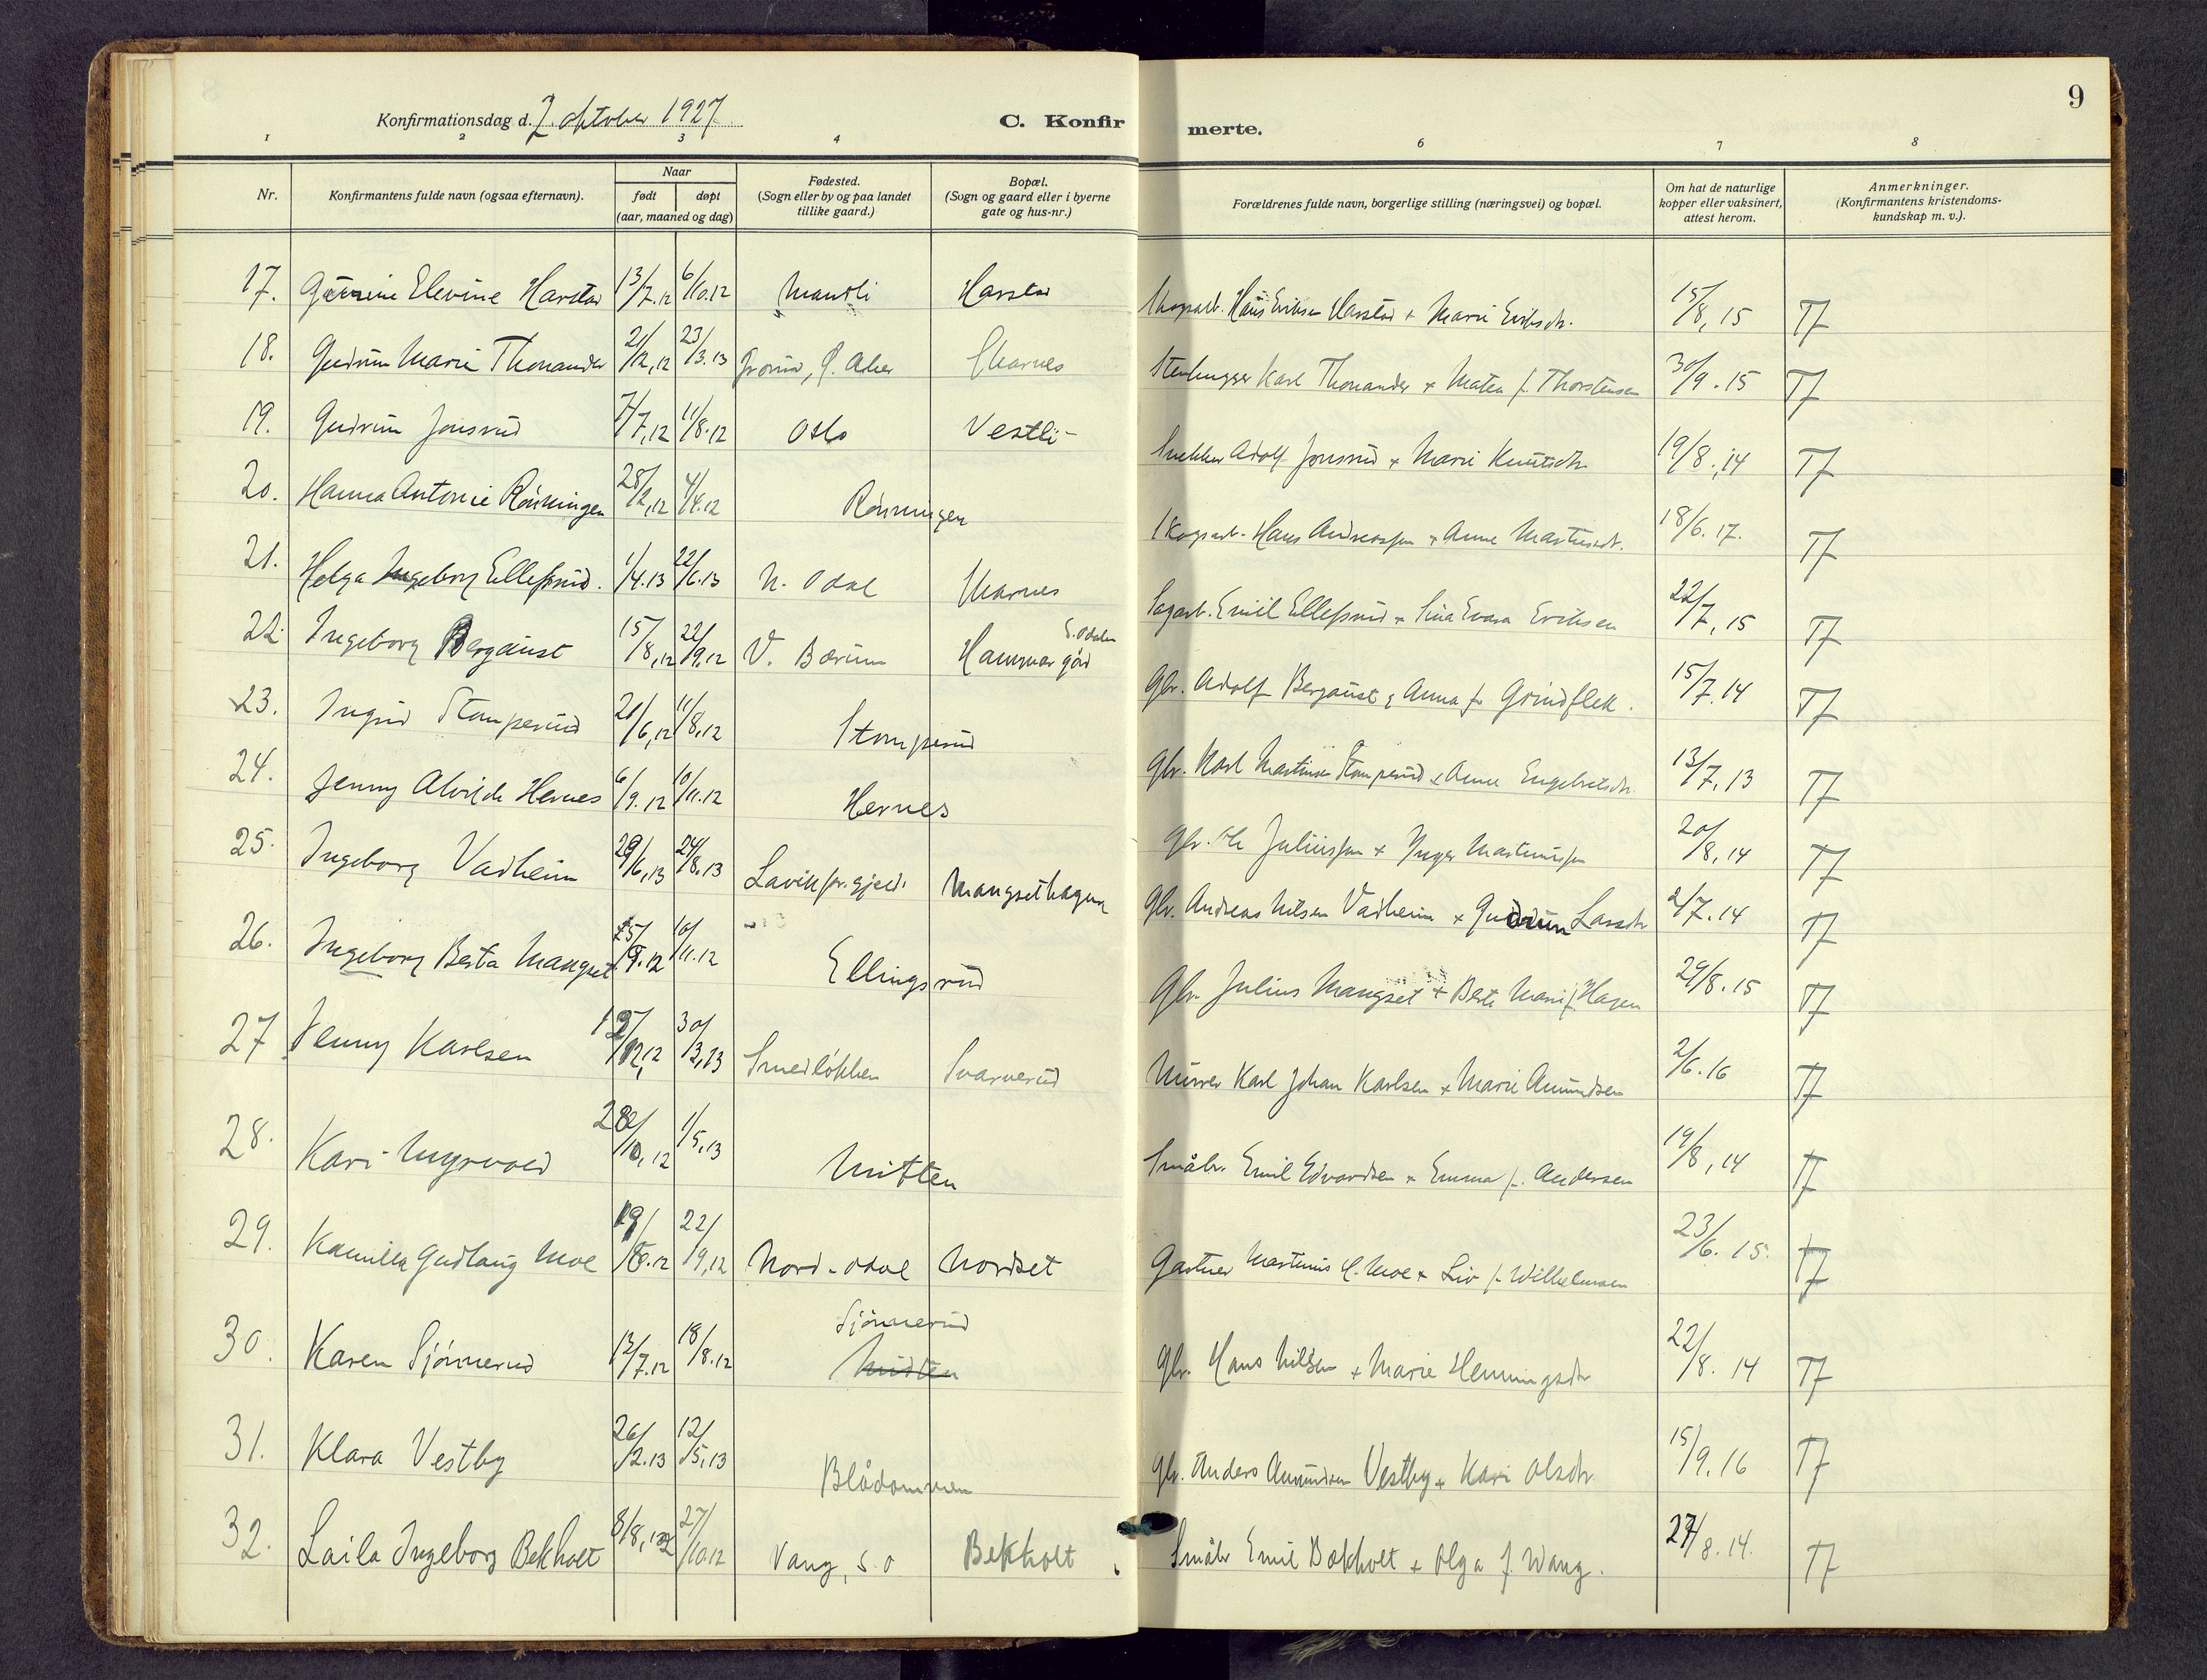 9
Konfirmationsdag d. 2 oktober 1927
C. Konfirmerte.
1 2 3 4 6 7 8
Nr.
Konfirmantens fulde navn (ogsaa efternavn).
Naar
født døpt
(aar, maaned og dag)
Fødested.
(Sogn eller by og paa landet
tillike gaard.)
Bopæl.
(Sogn og gaard eller i byerne
gate og hus-nr.)
Forældrenes fulde navn, borgerlige stilling (næringsvei) og bopæl.
Om hat de naturlige
kopper eller vaksinert,
attest herom.
Anmerkninger.
(Konfirmantens kristendoms-
kundskap m. v.).
17. Elevine Harstad 13/7.12 6/10.12 Harstad Hans Eriksen Harstad + Marie Eriksdr. 15/8, 15 T7
18. Gudrun Marie Thonander 21/12,12 23/3.13 Karl Thonander + Matea f. Thorstensen 30/9.15 T7
19. Gudrun Jonsrud 7/7,12 11/8.12 Oslo Vestli Snekker Adolf Jonsrud + Marie Knutsdr. 19/8.14 T7
20. Hanna Antonie Rönningen 28/2,12 4/4.12 Rönningen Skogsarb. Hans Andreassen + Anne Martinsdr. 18/6.17. T7
21. Helga Ingeborg Ellefsrud. 1/4.13 22/6.13 N. Odal Skarnes Sagarb. Emil Ellefsrud + Eriksen 22/7,15 T7
22. Ingeborg Bergaust 15/8,12 22/9,12 V. Bærum S. Odalen
Hammar gård Gbr. Adolf Bergaust & Anna f. Grindflek. 15/7.14 T7
23. Ingrid Stomperud 21/6,12 11/8,12 Stomperud Gbr. Karl Martinsen Stomperud + Anne Engebretsdr. 13/7,13 T7
24. Jenny Alvilde Hernes 6/9.12 10/11.12 Hernes Gbr. Ole Juliussen + Inger Martinussen 20/8,14 T7
25. Ingeborg Vadheim 29/6,13 24/8.13 Lavik pr.gjeld. Mangsethagen Gbr. Andreas Nilsen Vadheim + Gudrun Larsdr 2/7.14 T7
26. Ingeborg Berta Mangset 25/9.12 10/11.12 Ellingsrud Gbr. Julius Mangset + Berte Marie f. Hagen 29/8.15 T7
27 Jenny Karlsen 12,12 30/3,13 Smedløkken Svarverud Murer Karl Johan Karlsen + Marie Amundsen 2/6.16 T7
28. Kari Myrvold 28/10,12 1/5,13 Mitten Småbr. Emil Edvardsen + Emma f. Andersen 19/8,14 T7
29. Kamilla Gudlaug Moe 19/8.12 22/9,12 Nord-Odal Nordset Gartner Martinus H. Moe + Liv f. Wilhelmsen 23/6.15. T7
30. Karen Sjönnerud 12/7.12 18/8.12 Sjönnerud
Midten Gbr. Hans Nilsen + Marie Henningsdr 22/8.14 T7
31. Klara Vestby 26/2.13 12/5,13 Blådammen Gbr. Anders Amundsen Vestby + Kari Olsdr. 15/9.16 T7
32. Laila Ingeborg Bekholt 8/8,12 27/10.12 Vang, S.O Bekholt Småbr Emil Bekholt + Olga f. Wang. 27/8.14. T7